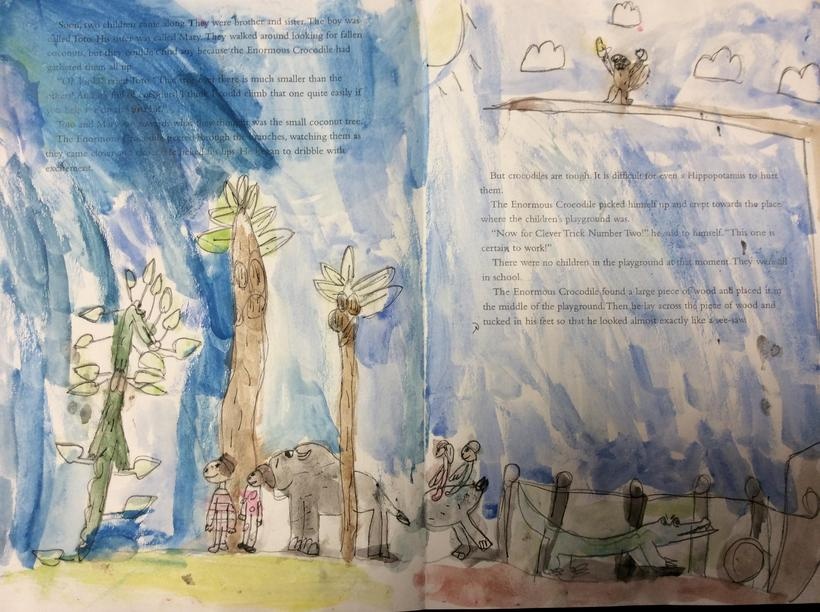 "Soon, two children came along. They were brother and sister. The boy was
called Toto. His sister was called Mary. They walked around looking for fallen
coconuts, but they couldn't find any because the Enormous Crocodile had
gathered them all up.
"Oh look!" cried Toto. "That tree over there is much smaller than the
others! And it's full of coconuts! I think I could climb that one quite easily if
you help me
Toto and Mary ran towards what they thought was the small coconut tree.
The Enormous Crocodile peered through the branches, watching them as
they came closer and closer. He licked his lips. He began to dribble with
excitement.
But crocodiles are tough. It is difficult for even a Hippopotamus to hurt
them.
The Enormous Crocodile picked himself up and crept towards the place
where the children's playground was.
"Now for Clever Trick Number Two!" he said to himself. "This one is
certain to work!"
There were no children in the playground at that moment. They were all
in school.
The Enormous Crocodile found a large piece of wood and placed it in
the middle of the playground. Then he lay across the piece of wood and
tucked in his feet so that he looked almost exactly like a see-saw.